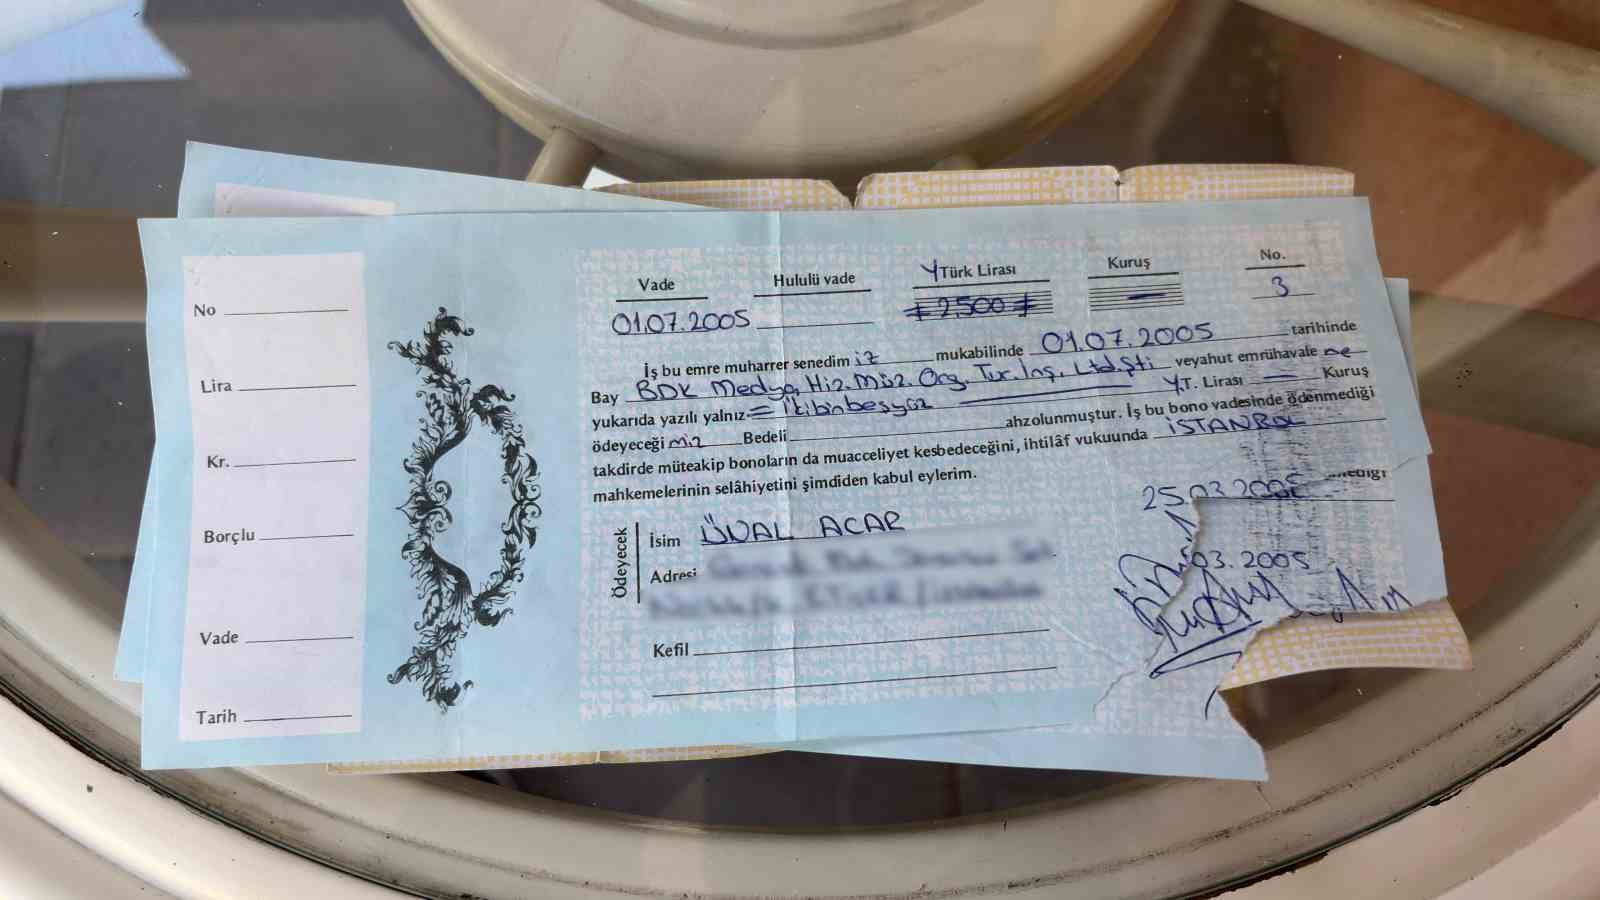 No
Lira
Kr.
Borçlu
Vade
Tarih
Vade Hululü vade YTürk Lirası Kuruş No.
01.07.2005 2.500 — 3
İş bu emre muharrer senedim iz mukabilinde 01.07.2005 tarihinde
Bay BDK Medya Hiz. Müz. Org. Tur. İnş. Ltd. Şti veyahut emrühavale ne
yukarıda yazılı yalnız = İkibinbeşyüz — Y.T. Lirası — Kuruş
ödeyeceği miz Bedeli ahzolunmuştur. İş bu bono vadesinde ödenmediği
takdirde müteakip bonoların da muacceliyet kesbedeceğini, ihtilâf vukuunda İSTANBUL
mahkemelerinin selâhiyetini şimdiden kabul eylerim.
25.03.2005
Ödeyecek
İsim ÜNAL ACAR
Adresi
03.2005
Kefil